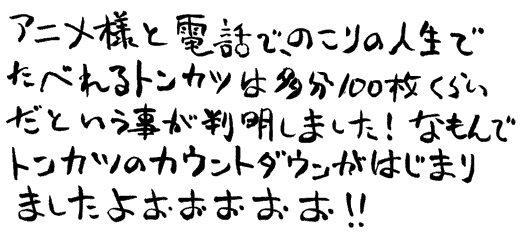 アニメ様と電話で、のこりの人生で
たべれるトンカツは多分100枚くらい
だという事が判明しました！なもんで
トンカツのカウントダウンがはじまり
ましたよおおおおお!!